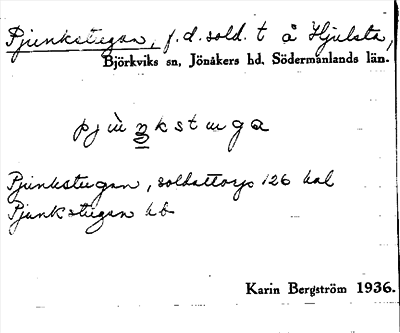 Pjunkstugan, f.d. sold. t å Hjulsta,
Björkviks sn, Jönåkers hd, Södermanlands län.
pjùŋkstuga
Pjunkstugan, soldattorp 126 hal
Pjunkstugan hb
Karin Bergström 1936.